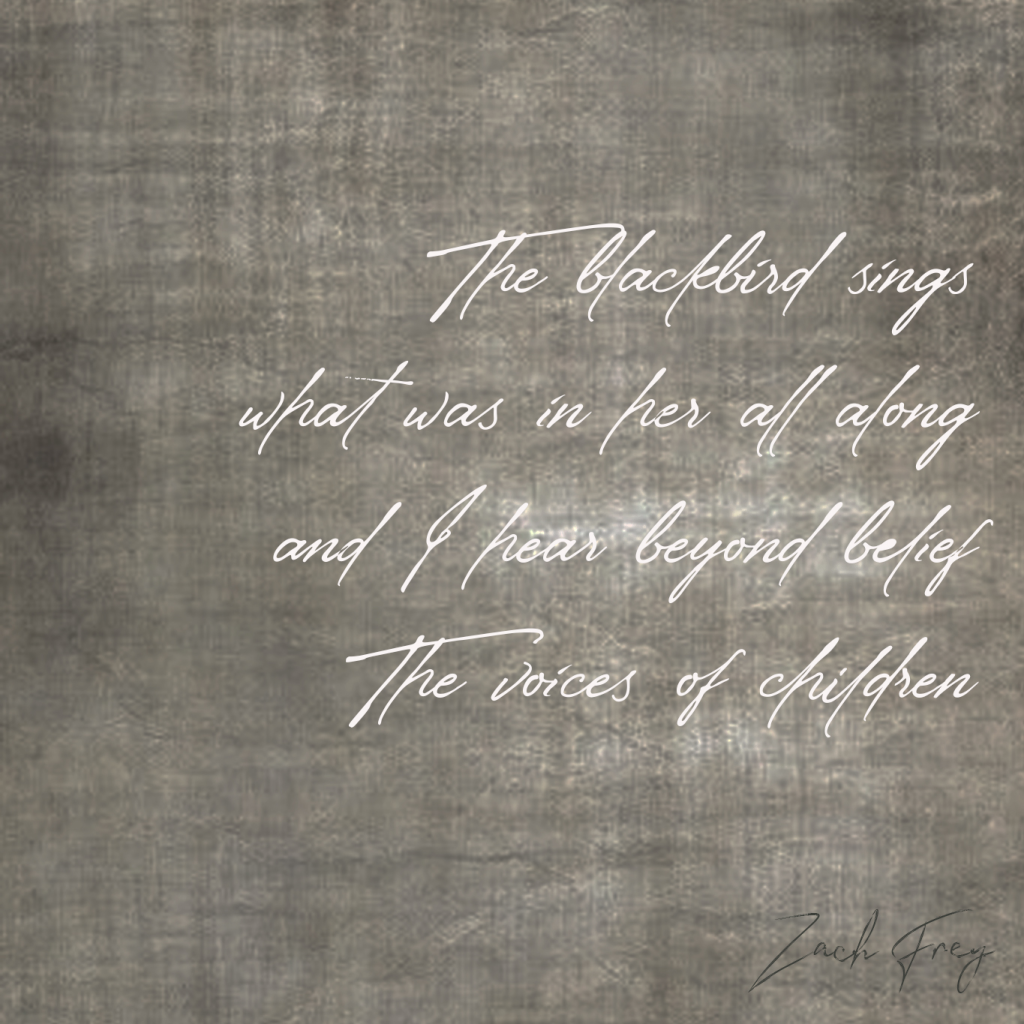 The blackbird sings
what was in her all along
and I hear beyond belief
The voices of children
Zach Frey